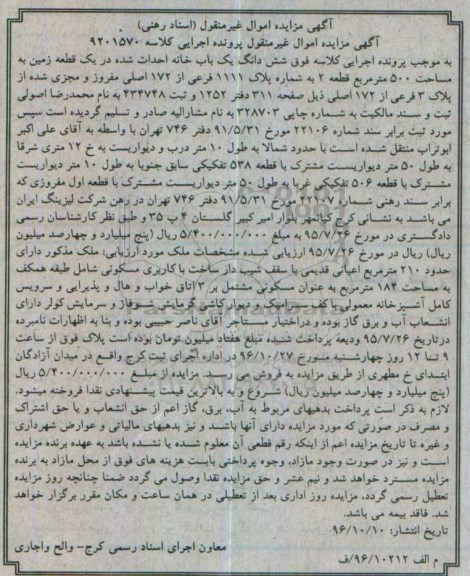 آگهی مزایده اموال غیرمنقول (اسناد رهنی)
آگهی مزایده اموال غیرمنقول پرونده اجرایی کلاسه ۹۲۰۱۵۷۰
به موجب پرونده اجرایی کلاسه فوق شش دانگ یک باب خانه احداث شده در یک قطعه زمین به
مساحت ۵۰۰ مترمربع قطعه ۲ به شماره پلاک ۱۱۱۱ فرعی از ۱۷۲ اصلی مفروز و مجزی شده از
پلاک ۳ فرعی از ۱۷۲ اصلی ذیل صفحه ۳۱۱ دفتر ۱۲۵۲ و ثبت ۴۳۴۷۴۸ به نام محمدرضا اصولی
ثبت و سند مالکیت به شماره چاپی ۳۲۸۷۰۳ به نام مشارالیه صادر و تسلیم گردیده است سپس
مورد ثبت برابر سند شماره ۲۲۱۰۶ مورخ ۹۱/۵/۳۱ دفتر ۷۴۶ تهران با واسطه به آقای علی اکبر
ابوتراب منتقل شده است با حدود شمالا به طول ۱۰ متر درب و دیواریست به خ ۱۲ متری شرقا
به طول ۵۰ متر دیواریست مشترک با قطعه ۵۳۸ تفکیکی سابق جنوبا به طول ۱۰ متر دیواریست
مشترک با قطعه ۵۰۶ تفکیکی غربا به طول ۵۰ متر دیواریست مشترک با قطعه اول مفروزی که
برابر سند رهنی شماره ۲۲۱۰۷ مورخ ۹۱/۵/۳۱ دفتر ۷۴۶ تهران در رهن شرکت لیزینگ ایران
می باشد به نشانی کرج کیانمهر بلوار امیر کبیر گلستان ۴ پ ۳۵ و طبق نظر کارشناسان رسمی
دادگستری در مورخ ۹۵/۷/۲۶ به مبلغ ۵/۴۰۰/۰۰۰/۰۰۰ ریال (پنج میلیارد و چهارصد میلیون
ریال) ریال در مورخ ۹۵/۷/۲۶ ارزیابی شده مشخصات ملک مورد ارزیابی: ملک مذکور دارای
حدود ۲۱۰ مترمربع اعیانی قدیمی با سقف شیب دار ساخت با کاربری مسکونی شامل طبقه همکف
به مساحت ۱۸۴ مترمربع به عنوان مسکونی مشتمل بر ۳ اتاق خواب و هال و پذیرایی و سرویس
کامل آشپزخانه معمولی با کف سرامیک و دیوار کاشی گرمایش شوفاژ و سرمایش کولر دارای
انشعاب آب و برق گاز بوده و دراختیار مستاجر آقای ناصر حبیبی بوده و بنا به اظهارات نامبرده
درتاریخ ۹۵/۷/۲۶ ودیعه پرداخت شده مبلغ هفتاد میلیون تومان بوده است پلاک فوق از ساعت
۹ تا ۱۲ روز چهارشنبه مورخ ۹۶/۱۰/۲۷ در اداره اجرای ثبت کرج واقع در میدان آزادگان
ابتدای خ مطهری از طریق مزایده به فروش می رسد. مزایده از مبلغ ۵/۴۰۰/۰۰۰/۰۰۰ ریال
(پنج میلیارد و چهارصد میلیون ریال) شروع و به بالاترین قیمت پیشنهادی نقدا فروخته میشود.
لازم به ذکر است پرداخت بدهیهای مربوط به آب، برق، گاز اعم از حق انشعاب و یا حق اشتراک
و مصرف در صورتی که مورد مزایده دارای آنها باشد و نیز بدهیهای مالیاتی و عوارض شهرداری
و غیره تا تاریخ مزایده اعم از اینکه رقم قطعی آن معلوم شده یا نشده باشد به عهده برنده مزایده
است و نیز در صورت وجود مازاد، وجوه پرداختی بابت هزینه های فوق از محل مازاد به برنده
مزایده مسترد خواهد شد و نیم عشر و حق مزایده نقدا وصول می گردد ضمنا چنانچه روز مزایده
تعطیل رسمی گردد، مزایده روز اداری بعد از تعطیلی در همان ساعت و مکان مقرر برگزار خواهد
شد. فاقد بیمه می باشد.
تاریخ انتشار: ۹۶/۱۰/۱۰
معاون اجرای اسناد رسمی کرج- والح واجاری
م الف ۹۶/۱۰۲۱۲/ف